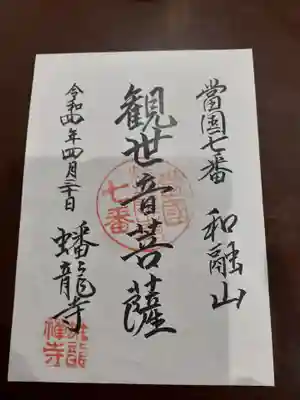 當国七番 和融山
観世音菩薩
令和四年四月二十日 蟠龍寺
七番